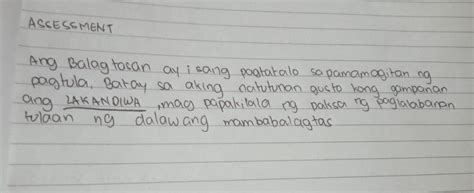 ASSESSMENT
Ang Balagtasan ay isang pagtatalo sa pamamagitan ng
pagtula. Batay sa aking natutunan gusto kong gampanan
ang LAKANDIWA, mag papakilala ng paksa ng paglalabanan
tulaan ng dalawang mambabalagtas